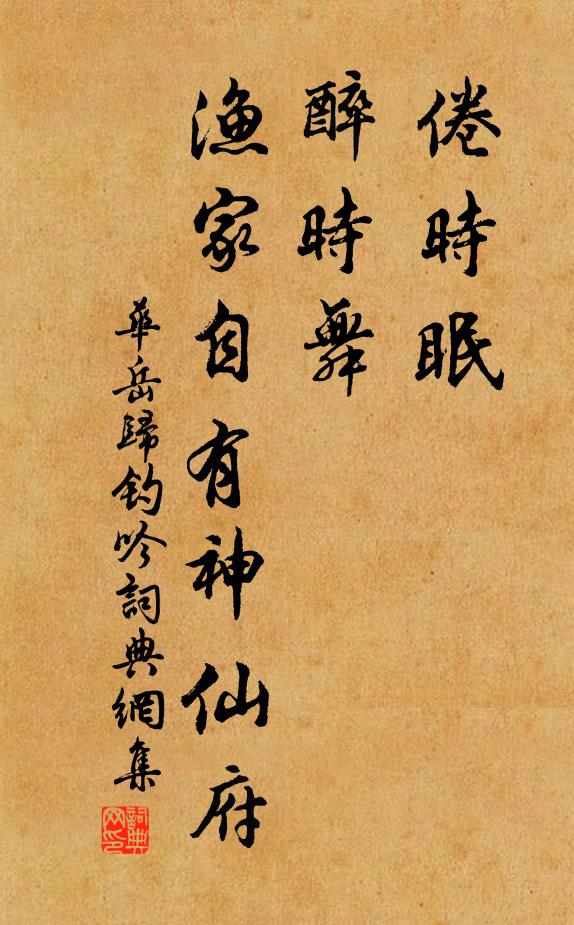 倦時眠
醉時舞
漁家自有神仙府
華岳歸釣吟詞典網集
詞典
网印